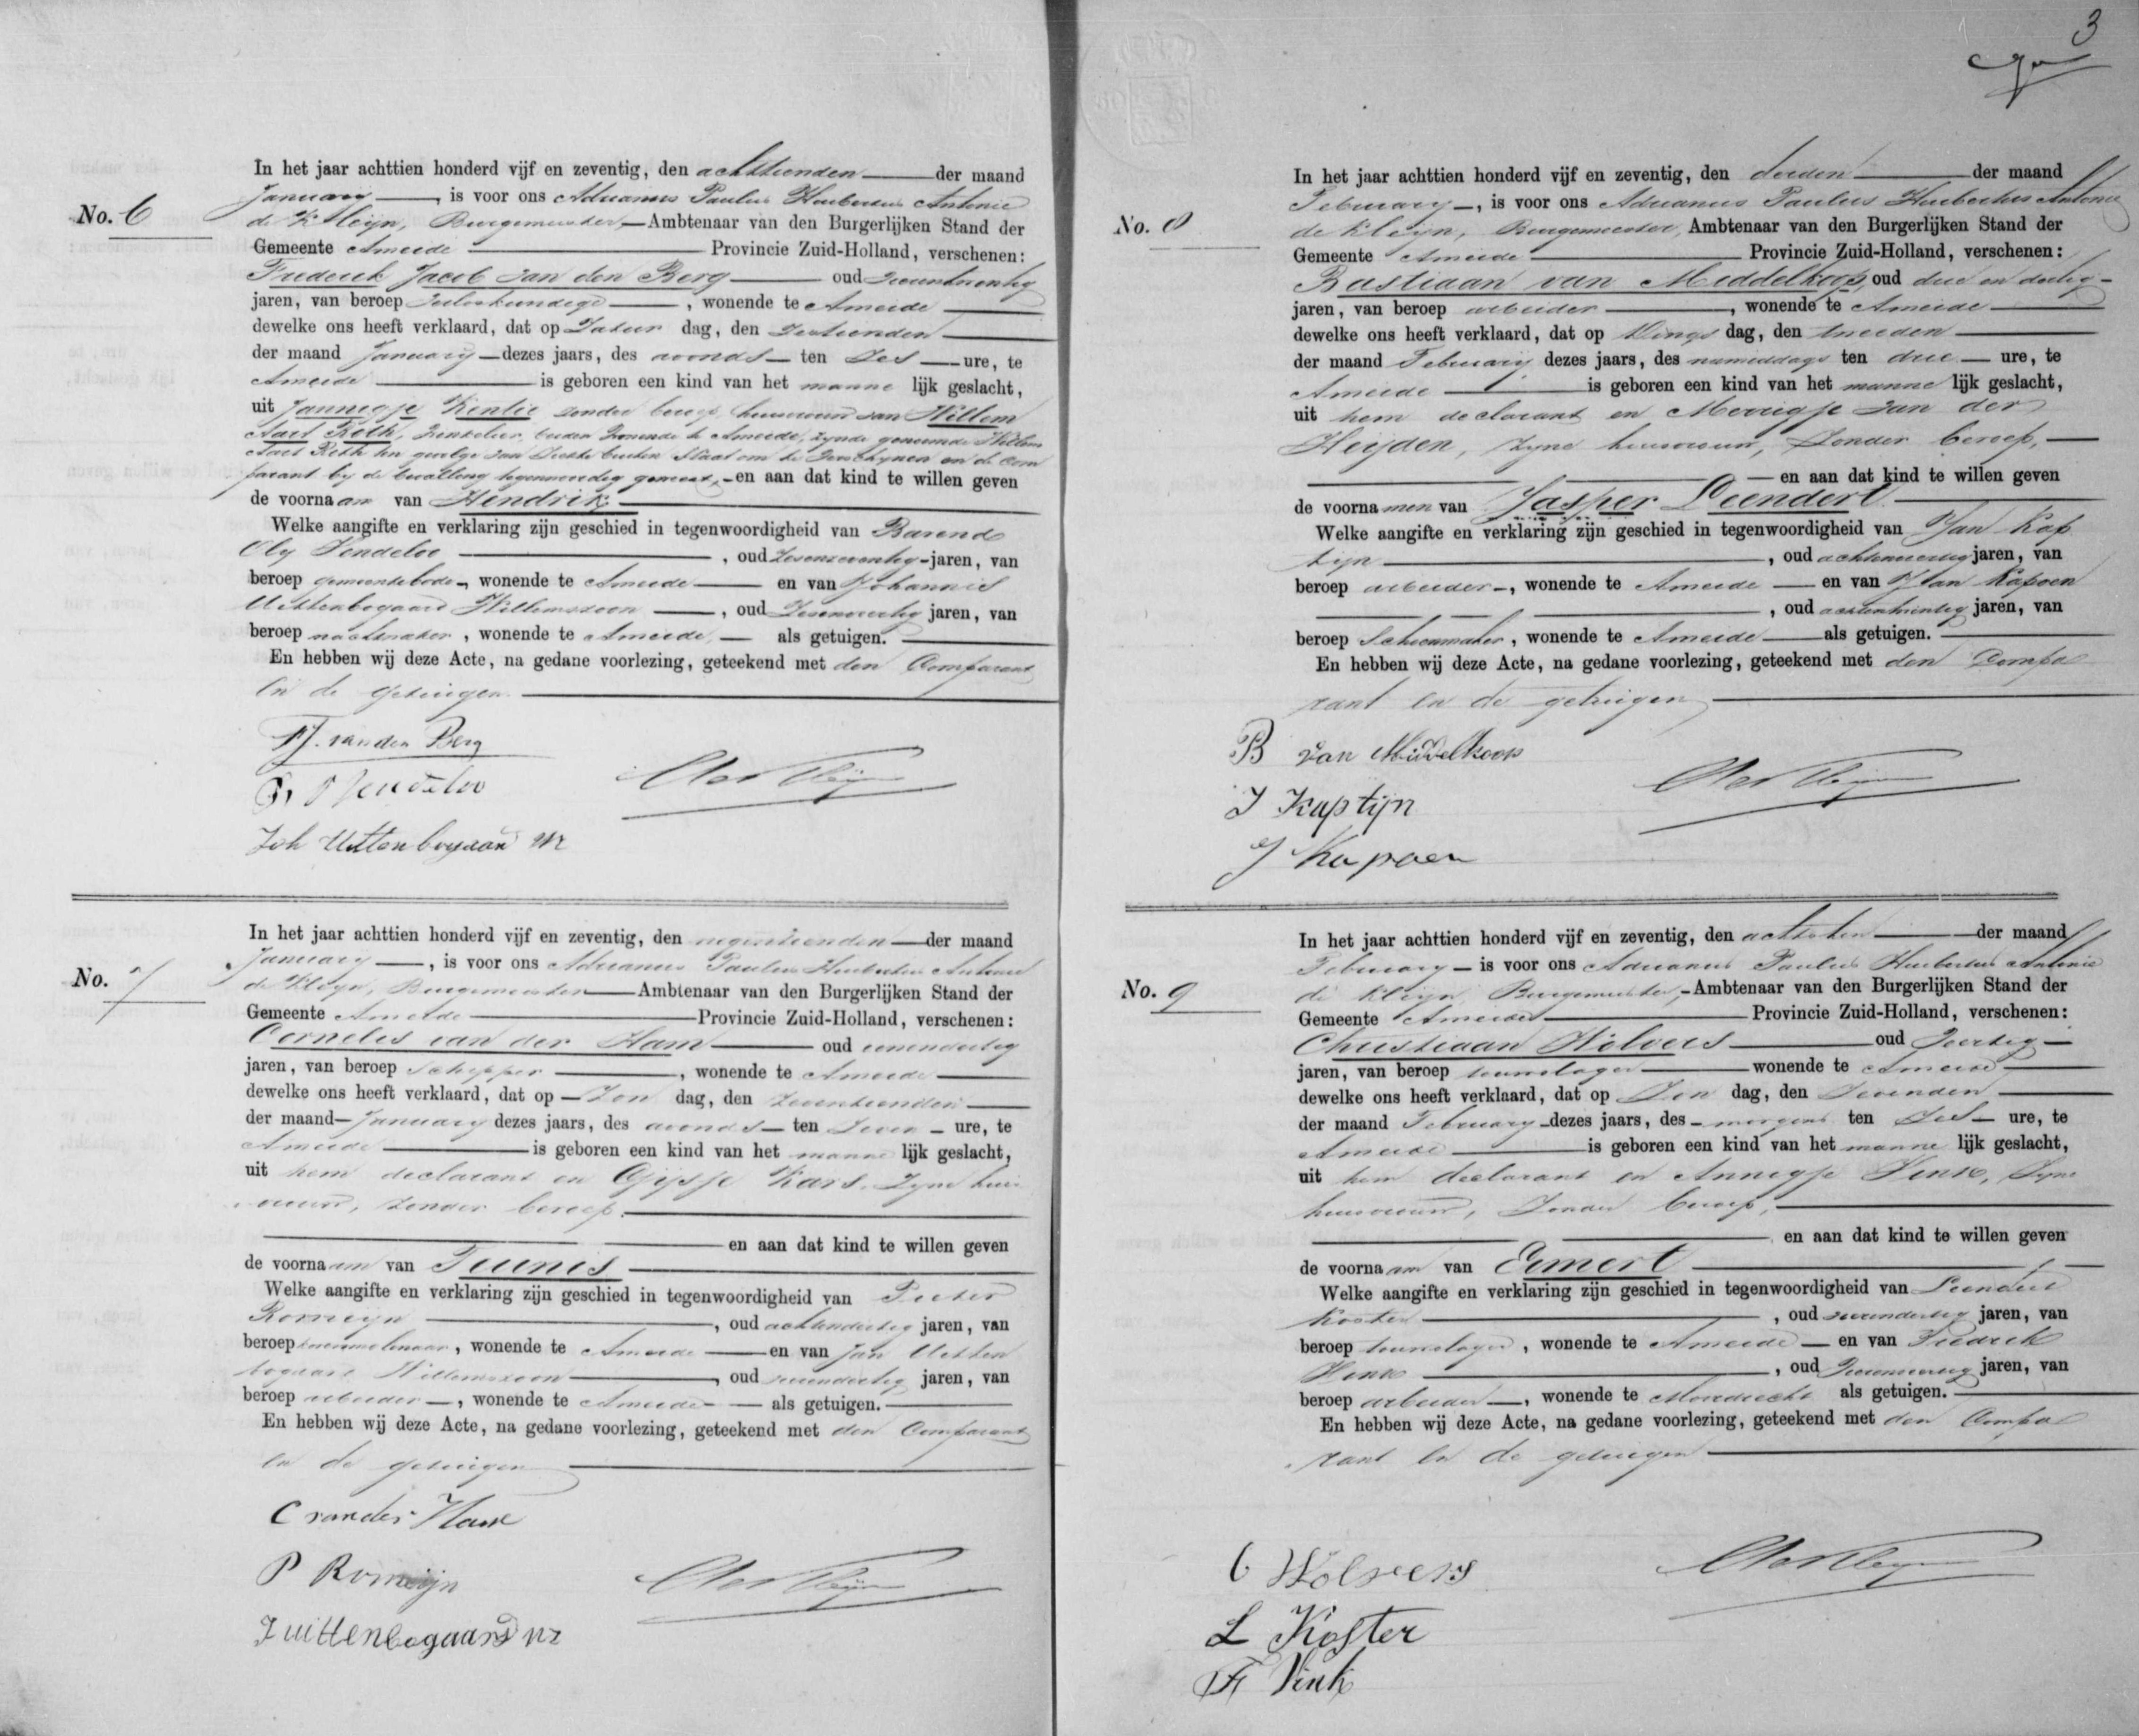 No. 6
In het jaar achttien honderd vijf en zeventig, den achttienden der maand
January, is voor ons Adrianus Paulus Huibertus Antonie
de Kleijn, Burgemeester, Ambtenaar van den Burgerlijken Stand der
Gemeente Ameide Provincie Zuid-Holland, verschenen:
Frederik Jacob van den Berg oud
jaren, van beroep , wonende te Ameide
dewelke ons heeft verklaard, dat op Zatur dag, den zestienden
der maand January dezes jaars, des avonds ten zes ure, te
Ameide is geboren een kind van het manne lijk geslacht,
uit Jannegje Kentie zonder beroep, huisvrouw van Willem
Aart Reth, beiden wonende te Ameide, zynde genoemde Willem
Aart Reth ten gevolge van buiten staat om te verschynen en de com
parant by de bevalling tegenwoordig geweest, en aan dat kind te willen geven
de voornaam van Hendrik
Welke aangifte en verklaring zijn geschied in tegenwoordigheid van Barend
Vendeloo , oud zesenzeventig jaren, van
beroep gemeentebode, wonende te Ameide en van Johannis
Uittenbogaard Willemszoon , oud jaren, van
beroep , wonende te Ameide, als getuigen.
En hebben wij deze Acte, na gedane voorlezing, geteekend met den Comparant
en de getuigen
FJ. van den Berg
Joh Uittenbogaard Wz
No. 7
In het jaar achttien honderd vijf en zeventig, den negentienden der maand
January, is voor ons Adrianus Paulus Huibertus Antonie
de Kleijn, Burgemeester Ambtenaar van den Burgerlijken Stand der
Gemeente Ameide Provincie Zuid-Holland, verschenen:
Cornelis van der Ham oud eenendertig
jaren, van beroep Schipper, wonende te Ameide
dewelke ons heeft verklaard, dat op Zon dag, den zeventienden
der maand January dezes jaars, des avonds ten zeven ure, te
Ameide is geboren een kind van het manne lijk geslacht,
uit hem declarant en Gijsje Kars, zyne huis
vrouw, zonder beroep.
en aan dat kind te willen geven
de voornaam van Teunis
Welke aangifte en verklaring zijn geschied in tegenwoordigheid van Pieter
Romeijn , oud achtendertig jaren, van
beroep korenmolenaar, wonende te Ameide en van Jan Uitten
bogaard Willemszoon , oud jaren, van
beroep arbeider, wonende te Ameide als getuigen.
En hebben wij deze Acte, na gedane voorlezing, geteekend met den Comparant
en de getuigen
C van der Ham
P Romeijn
J uittenbogaard wz
3
No. 8
In het jaar achttien honderd vijf en zeventig, den derden der maand
February, is voor ons Adrianus Paulus Huibertus Antonie
de Kleijn, Burgemeester, Ambtenaar van den Burgerlijken Stand der
Gemeente Ameide Provincie Zuid-Holland, verschenen:
Bastiaan van Middelkoop, oud drie en dertig
jaren, van beroep arbeider, wonende te Ameide
dewelke ons heeft verklaard, dat op Dings dag, den tweeden
der maand February dezes jaars, des namiddags ten drie ure, te
Ameide is geboren een kind van het manne lijk geslacht,
uit hem declarant en Merrigje van der
Heijden, zyne huisvrouw, zonder beroep,
en aan dat kind te willen geven
de voornamen van Jasper Leendert
Welke aangifte en verklaring zijn geschied in tegenwoordigheid van Jan Kap
tijn , oud achtenveertig jaren, van
beroep arbeider, wonende te Ameide en van Jan Kapoen
, oud achtentwintig jaren, van
beroep Schoenmaker, wonende te Ameide als getuigen.
En hebben wij deze Acte, na gedane voorlezing, geteekend met den Compa
rant en de getuigen
B van Middelkoop
J Kaptijn
J Kapoen
No. 9
In het jaar achttien honderd vijf en zeventig, den achtsten der maand
February is voor ons Adrianus Paulus Huibertus Antonie
de Kleijn, Burgemeester, Ambtenaar van den Burgerlijken Stand der
Gemeente Ameide Provincie Zuid-Holland, verschenen:
Christiaan Wolvers oud Veertig
jaren, van beroep touwslager wonende te Ameide
dewelke ons heeft verklaard, dat op Zon dag, den Zevenden
der maand February dezes jaars, des morgens ten zes ure, te
Ameide is geboren een kind van het manne lijk geslacht,
uit hem declarant en Annigje Vink, zyne
huisvrouw, zonder beroep,
en aan dat kind te willen geven
de voornaam van Emert
Welke aangifte en verklaring zijn geschied in tegenwoordigheid van Leendert
Koster , oud jaren, van
beroep touwslager, wonende te Ameide en van Fredrik
Vink , oud jaren, van
beroep arbeider, wonende te als getuigen.
En hebben wij deze Acte, na gedane voorlezing, geteekend met den Compa
rant en de getuigen
C Wolvers
L Koster
F Vink